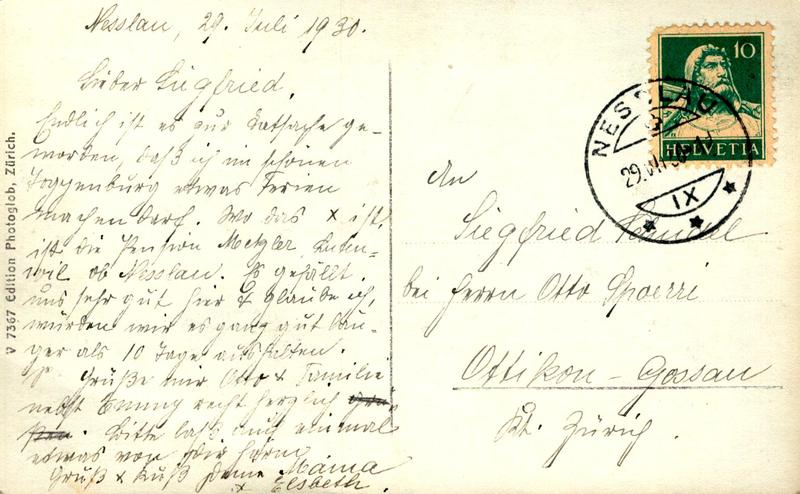 Nesslau, 29. Juli 1930.
Lieber Siegfried,
Endlich ist es zur Tatsache ge-
worden, daß ich im schönen
Toggenburg etwas Ferien
machen darf. Wo das x ist,
ist die Pension Metzler,
wil ob Nesslau. Es gefällt
uns sehr gut hier & glaube ich,
würden wir es ganz gut län-
ger als 10 Tage aushalten.
Grüße mir Otto & Familie
nebst Emmy recht herzlich
Bitte laß auch einmal
etwas von Dir hören
Gruß & Kuß Deine Mama
& Elsbeth.
V 7367 Edition Photoglob, Zürich.
10
HELVETIA
NESSLAU
29.VII.30
IX
An
Siegfried
bei Herrn Otto Spoerri
Ottikon - Gossau
Kt. Zürich.